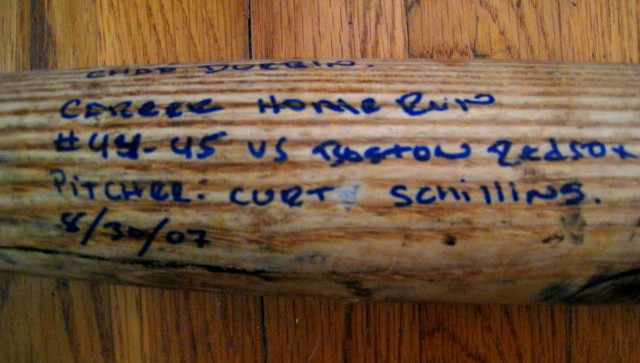 CHAD DURBIN.
CAREER HOME RUN
#44-45 VS BOSTON REDSOX
PITCHER: CURT SCHILLING.
8/30/07